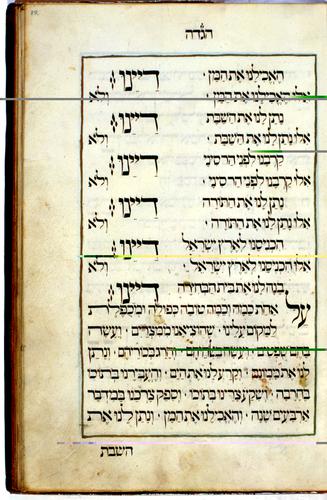 הגדה
האכילנו את המן · דיינו :
אלו האכילנו את המן · ולא
נתן לנו את השבת דיינו :
אלו נתן לנו את השבת · ולא
קרבנו לפני הר סיני דיינו :
אלו קרבנו לפני הר סיני · ולא
נתן לנו את התורה דיינו :
אלו נתן לנו את התורה · ולא
הכניסנו לארץ ישראל דיינו :
אלו הכניסנו לארץ ישראל · ולא
בנה לנו את בית הבחירה דיינו :
על אחת כמה וכמה טובה כפולה ומכפלת
למקום עלינו · שהוציאנו ממצרים · ועשה
בהם שפטים · ועשה באלהיהם · והרג בכוריהם · ונתן
לנו את ממונם · וקרע לנו את הים · והעבירנו בתוכו
בחרבה · ושקע צרינו בתוכו · וספק צרכנו במדבר
ארבעים שנה · והאכילנו את המן · ונתן לנו את
השבת